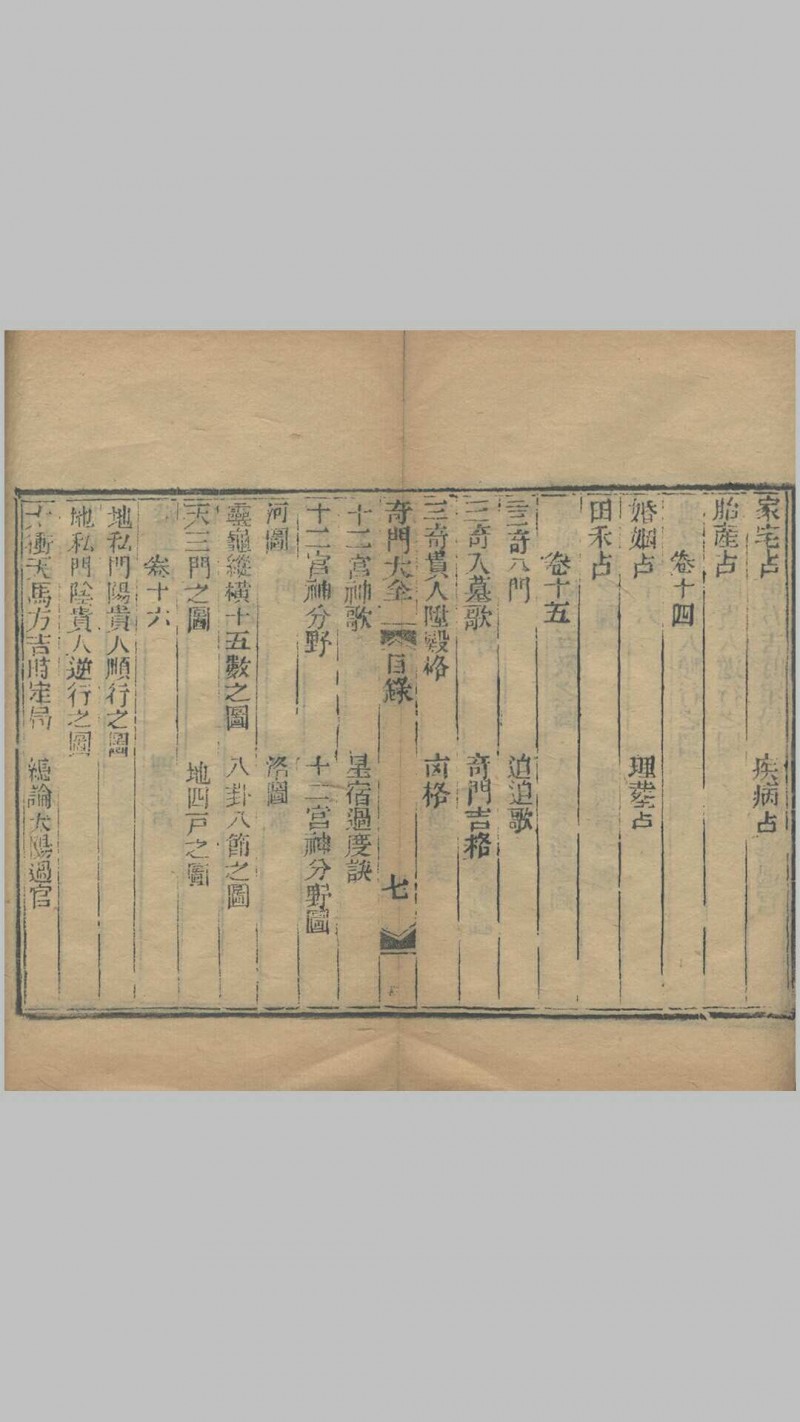 家宅占　疾病占
胎產占
卷十四
婚姻占　理塟占
田禾占
卷十五
三奇八門　迫迫歌
三奇入墓歌　奇門吉格
三奇貴人陞殿格　凶格
奇門大全　目錄　七
十二宮神歌　星宿過度訣
十二宮神分野　十二宮神分野圖
河圖　洛圖
靈龜縱橫十五數之圖　八卦八節之圖
天三門之圖　地四戶之圖
卷十六
地私門陽貴人順行之圖
地私門陰貴人逆行之圖
太衝天馬方吉時定局　總論太陽過宫